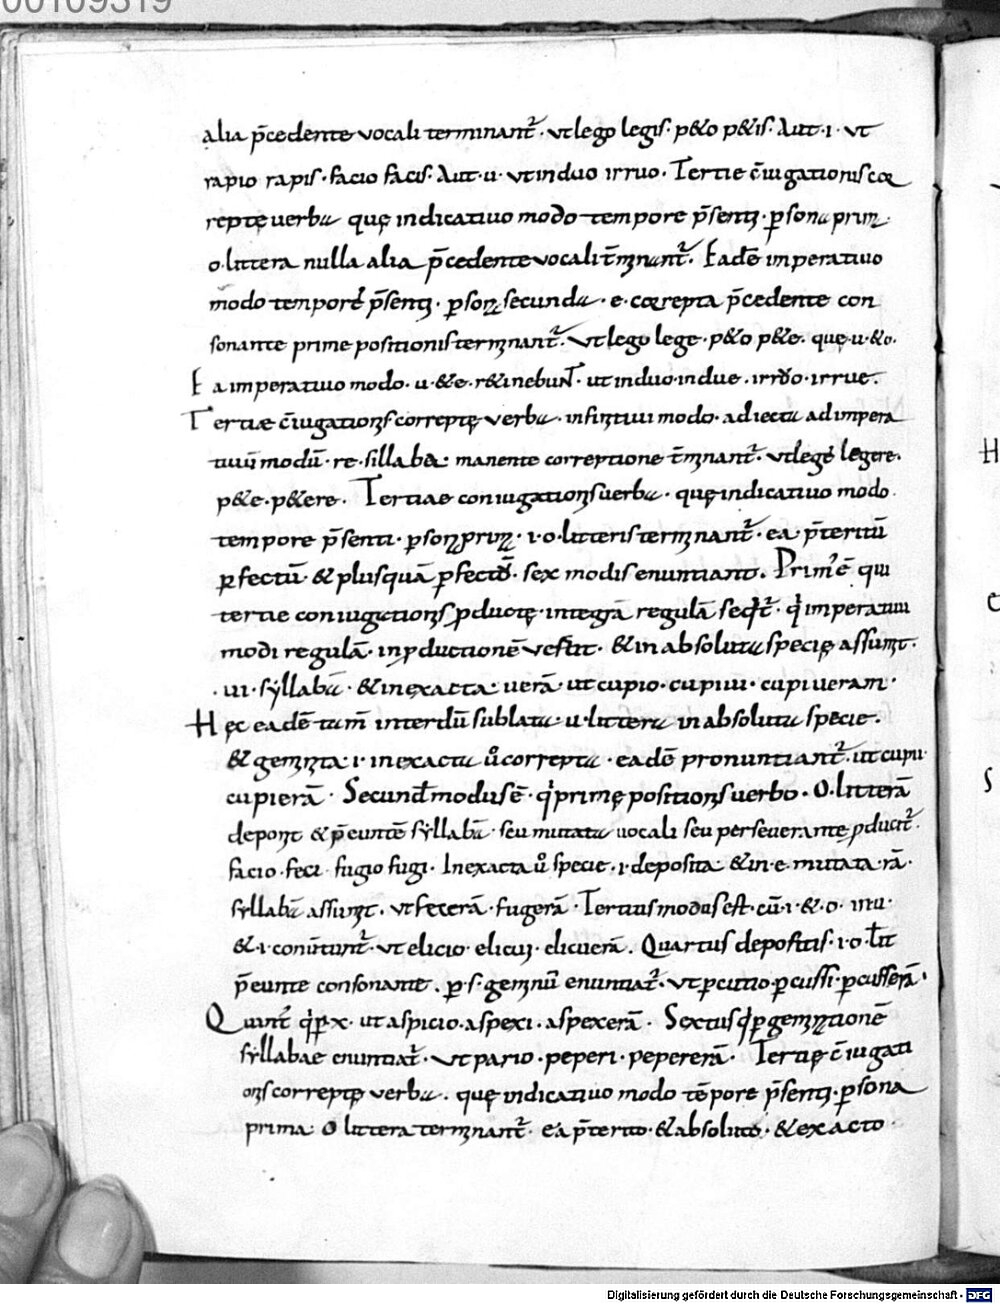 00109319
alia p̄cedente vocali terminant᷑. vt lego legis. p&o p&is. Aut. i. vt
rapio rapis. facio facis. Aut. u. vt induo irruo. Tertie c̄iugationis cor
reptę uerba quę indicatiuo modo tempore p̄senti. ꝑsona prima
o. littera nulla alia p̄cedente vocali t̄minant᷑. Eadē imperatiuo
modo tempore p̄senti. ꝑsona secunda. e. correpta p̄cedente con
sonante prime positionis terminant᷑. Vt lego lege. p&o p&e. quę. u. &o.
Ea imperatiuo modo. u. &e. r&inebunt. ut induo. indue. irruo. irrue.
Tertiae c̄iugationis correptę verba. infinitiui modo. adiecta ad impera
tiuū modū. re. sillaba. manente correptione t̄minant᷑. vt lege legere.
p&e. p&ere. Tertiae coniugationis uerba. quę indicatiuo modo.
tempore p̄senti. ꝑsona prima. i. o. litteris terminant᷑. ea p̄teritū
ꝑfectū. & plusquā ꝑfectū. sex modis enuntiant. Prim᷑ ē qui
tertie coniugationis ꝓductę. integrā regulā seqt᷑. qi imperatiui
modi regulā. in ꝓductionē vertit. & in absoluta specię assumit.
. ui. syllabā. & in exacta. uerā. ut cupio. cupiui. cupiueram.
Hęc eadē tam̄ interdū sublata. u. littera in absoluta specie.
& gemina. i. in exacta u᷑o correpta. eadē pronuntiant᷑. ut cupii
cupierā. Secund᷑ modus ē. qi primę positionis uerbo. O. litterā
deponit & p̄euntē syllabā. seu mutata uocali seu perseuerante ꝓducit᷑.
facio. feci. fugio fugi. In exacta u᷑o specie. i. deposita & in. e. mutata. rā.
syllabā assumit. vt fecerā. fugerā. Tertius modus est. cū. i. &. o. in u.
&. i. conu᷑tunt᷑. vt elicio. elicui. elicuerā. Quartus depositis. i. o. lit
p̄eunte consonante. ꝑ. s. geminū enuntiat᷑. Vt ꝑcutio. ꝑcussi. ꝑcusserā.
Quint᷑ qi ꝑ. x. ut aspicio. aspexi. aspexerā. Sextus qi ꝑ geminationē
syllabae enuntiat᷑. Vt pario. peperi. pepererā. Tertię c̄iugati
onis correptę verba. quę indicatiuo modo tēpore p̄senti. ꝑsona
prima. O littera terminant᷑. ea p̄terito. & absoluto. & exacto
Digitalisierung gefördert durch die Deutsche Forschungsgemeinschaft - DFG